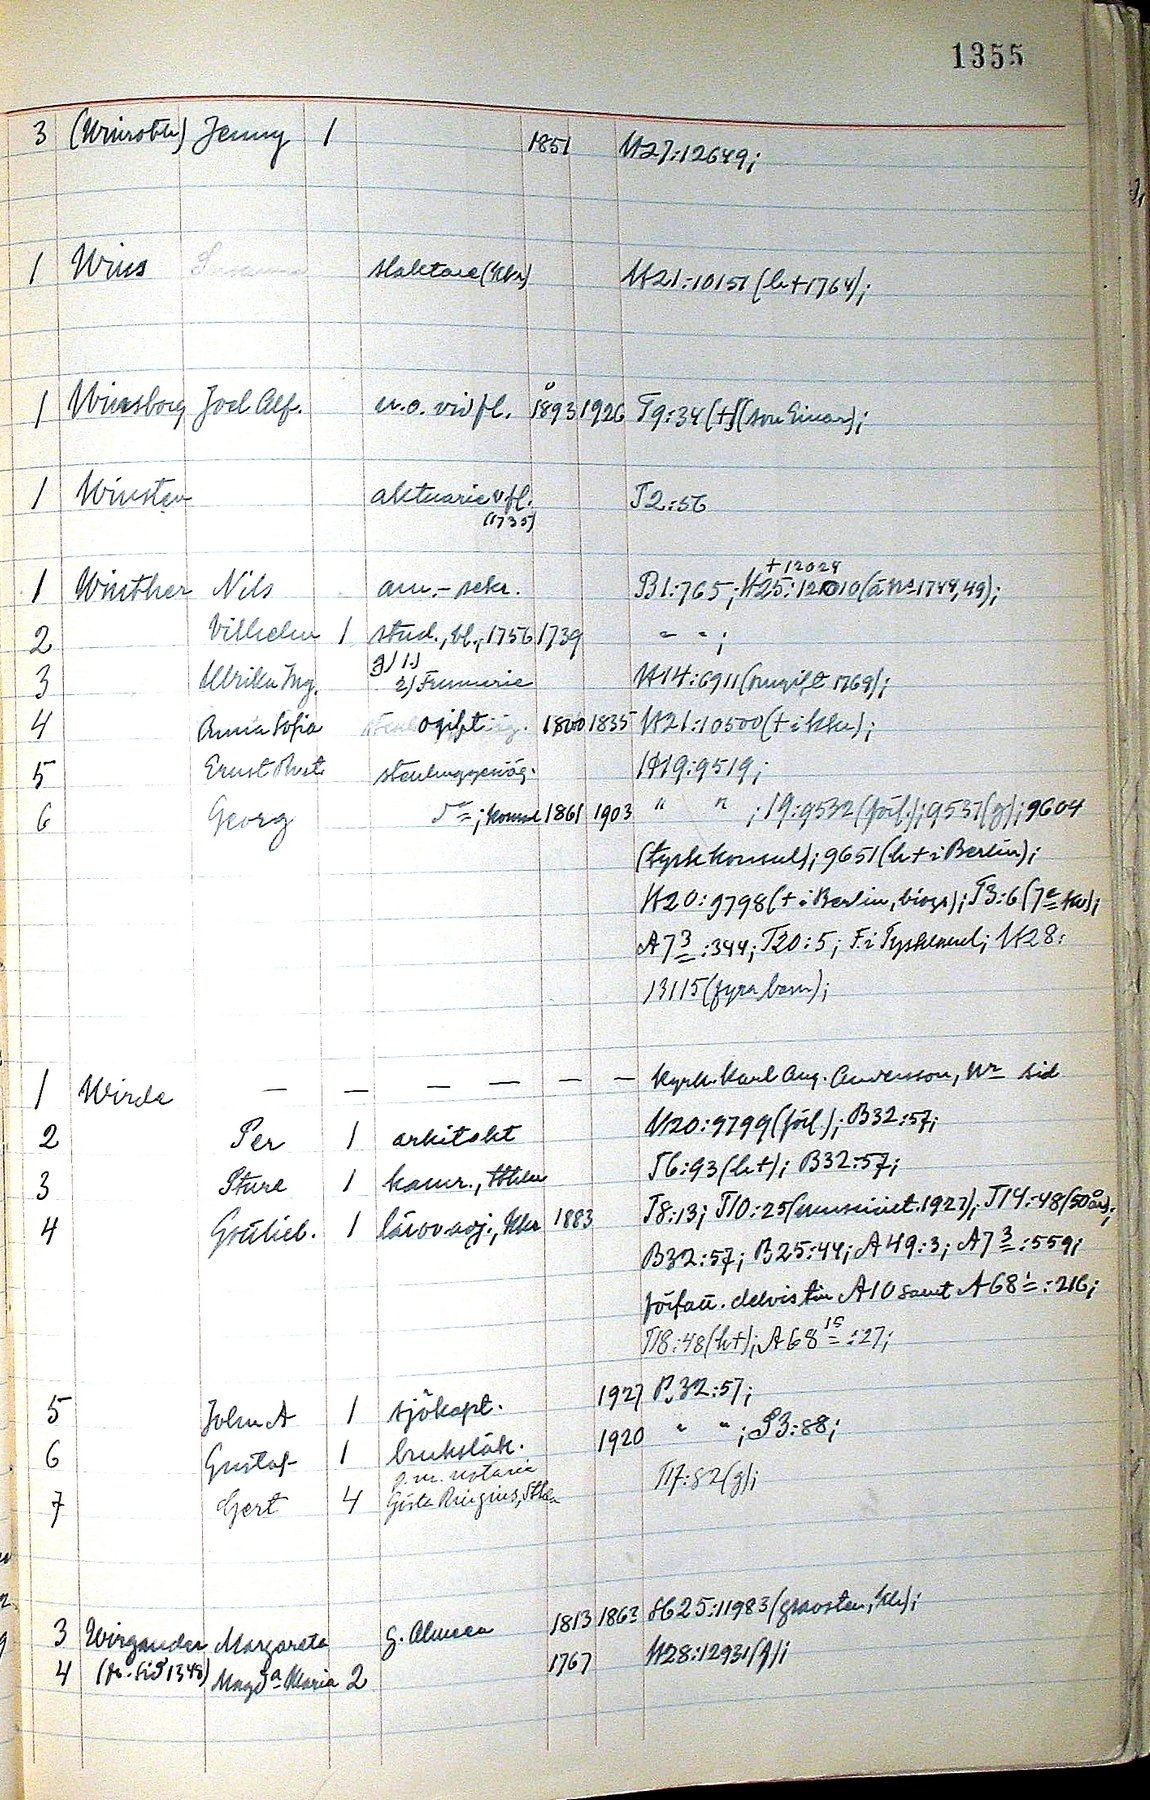 1355
3 (Winroth) Jenny 1 1851 H27:12649;
1 Wins slaktare (Khr) H21:10151 (h+1764);
1 Winsborg Joel Alf. e.o. vid fl. 1893 1926 T9:34 (+) (son Einar);
1 Winsten aktuarie v fl. T2:56
(1735)
+12024
1 Winther Nils am.-sekr. B1:765; H25:12010 (än 1744,49);
2 Vilhelm 1 stud., bl., 1756 1739 " ";
3 Ulrika Ing. g) 1) H14:6911 (omgift 1769);
2) Frumerie
4 Anna Sofia ogift 1800 1835 H21:10500 (+ i Khr);
5 Ernst Aust. stenhuggeriäg. H19:9519;
6 Georg konsul 1861 1903 " " ; 19:9532 (förl.); 9537 (g); 9604
(tysk konsul); 9651 (h+ i Berlin);
H20:9798 (+ i Berlin, biogr); T3:6
A7 3:344; T20:5; F. i Tyskland; H28:
13115 (fyra barn);
1 Wirde — — — — — — Kyrkh. Karl Aug. Andersson, Nr sid
2 Per 1 arkitekt H20:9799 (förl.); B32:57;
3 Sture 1 kamr., Sthlm T6:93 (h+); B32:57;
4 Gottlieb. 1 lärov.adj., Khr 1883 T8:13; T10:25 1927); T14:48 (50 år);
B32:57; B25:44; A49:3; A7 3:559;
författ. delvis till A10 samt A68 1:216;
T18:48 (h+); A68 15:27;
5 John A 1 sjökapt. 1927 B32:57;
6 Gustaf 1 bruksläk. 1920 " " ; S3:88;
g. m. notarie
7 Gert 4 Gösta Ringius, Sthlm T17:82 (g);
3 Wirgander Margareta g. Almen 1813 1863 H25:11983 (gravsten, Khr);
4 (fr. sid 1348) Magda Maria 2 1767 H28:12931 (f);